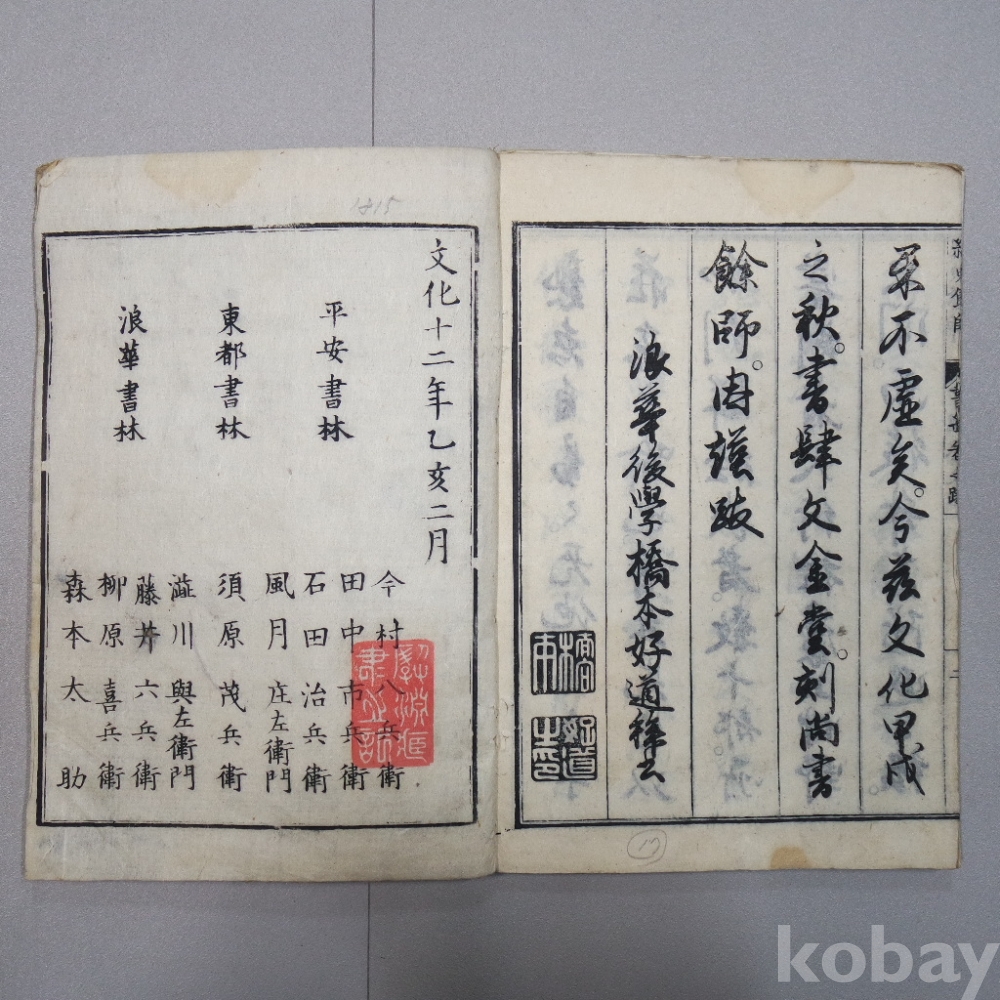 果不虛矣。今茲文化甲戌
之秋。書肆文金堂。刻尚書
餘師。因謹跋
浪華後學橋本好道
文化十二年乙亥二月
平安書林
今村八兵衛
田中市兵衛
石田治兵衛
風月庄左衛門
東都書林
須原茂兵衛
浪華書林
澁川與左衛門
藤井六兵衛
柳原喜兵衛
森本太助
1815
17
kobay